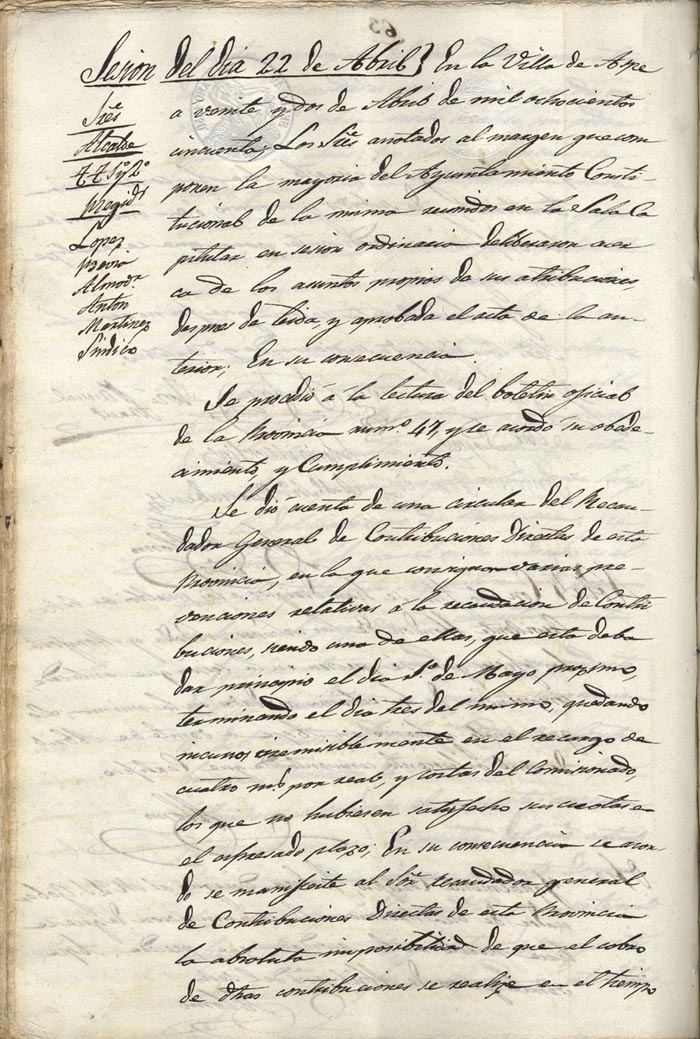 Sesion del dia 22 de Abril} En la Villa de Aspe
a veinte y dos de Abril de mil ochocientos
cincuenta, Los Sres anotados al margen que com
ponen la mayoria del Ayuntamiento Consti-
tucional de la misma reunidos en la Sala Ca
pitular en sesion ordinaria deliberaron acer
ca de los asuntos propios de sus atribuciones,
despues de leida, y aprobada el acta de la an-
terior; En su consecuencia
Se procedió a la lectura del boletin oficial
de la Provincia numo 47, y se acordó su obede-
cimiento, y Cumplimiento.
Se dió cuenta de una circular del Recau-
dador General de Contribuciones Directas de esta
Provincia, en la que consignan varias pre-
venciones relativas á la recaudacion de Contri
buciones, siendo una de ellas, que esta deba
dar principio el dia 1.º de Mayo procsimo,
terminando el dia tres del mismo, quedando
incursos irremisiblemente en el recargo de
cuatro ms por real, y costas del Comisionado,
los que no hubiesen satisfecho sus cuotas en
el espresado plazo; En su consecuencia se acor
dó se manifieste al Sor recaudador general
de Contribuciones Directas de esta Provincia
la absoluta imposibilidad de que el cobro
de dhas contribuciones se realize en el tiempo
Sres
Alcalde
Regids
Lopez
Almodr
Anton
Martinez
Sindico
63